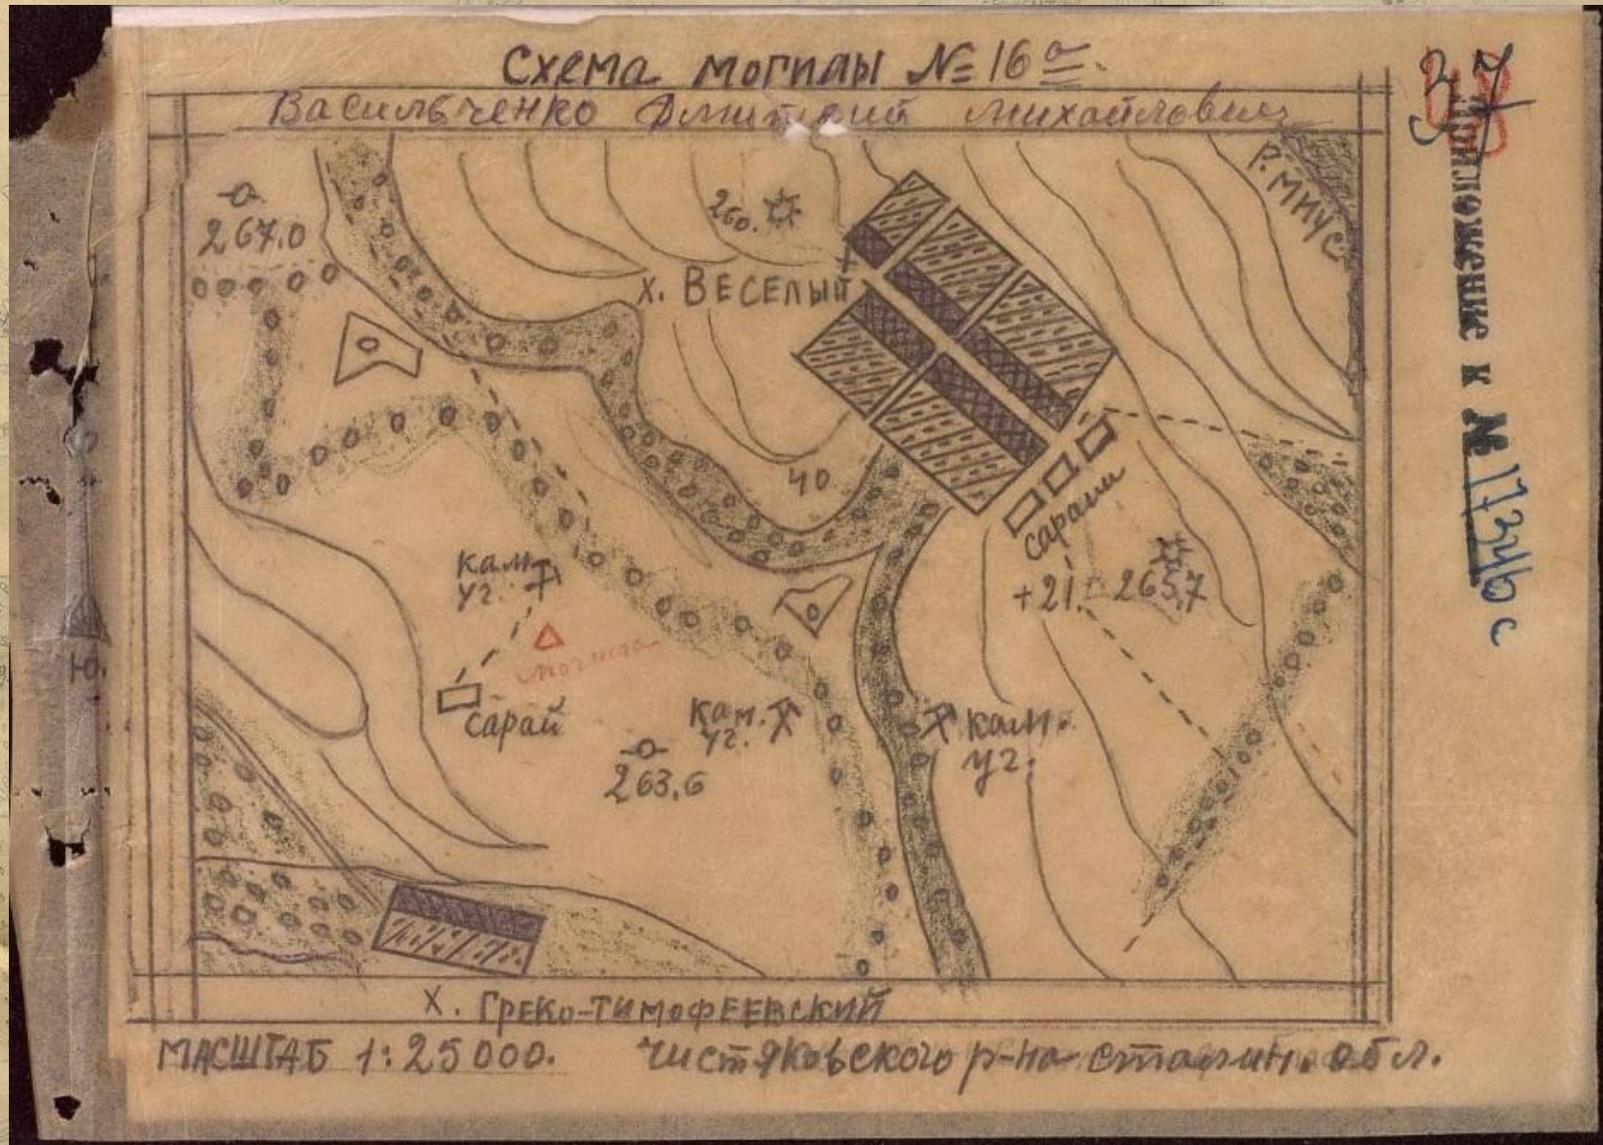 Схема могилы № 16а.
Васильченко Дмитрий Михайлович
37
Приложение к № 17346с
Р. МИУС
267,0
260.
Х. ВЕСЕЛЫЙ
40
сараи
+21.
265,7
кам.
уг.
могила
сарай
кам.
уг.
кам.
уг.
263,6
Ю.
Х. ГРЕКО-ТИМОФЕЕВСКИЙ
МАСШТАБ 1:25000. чистяковского р-на сталин. обл.